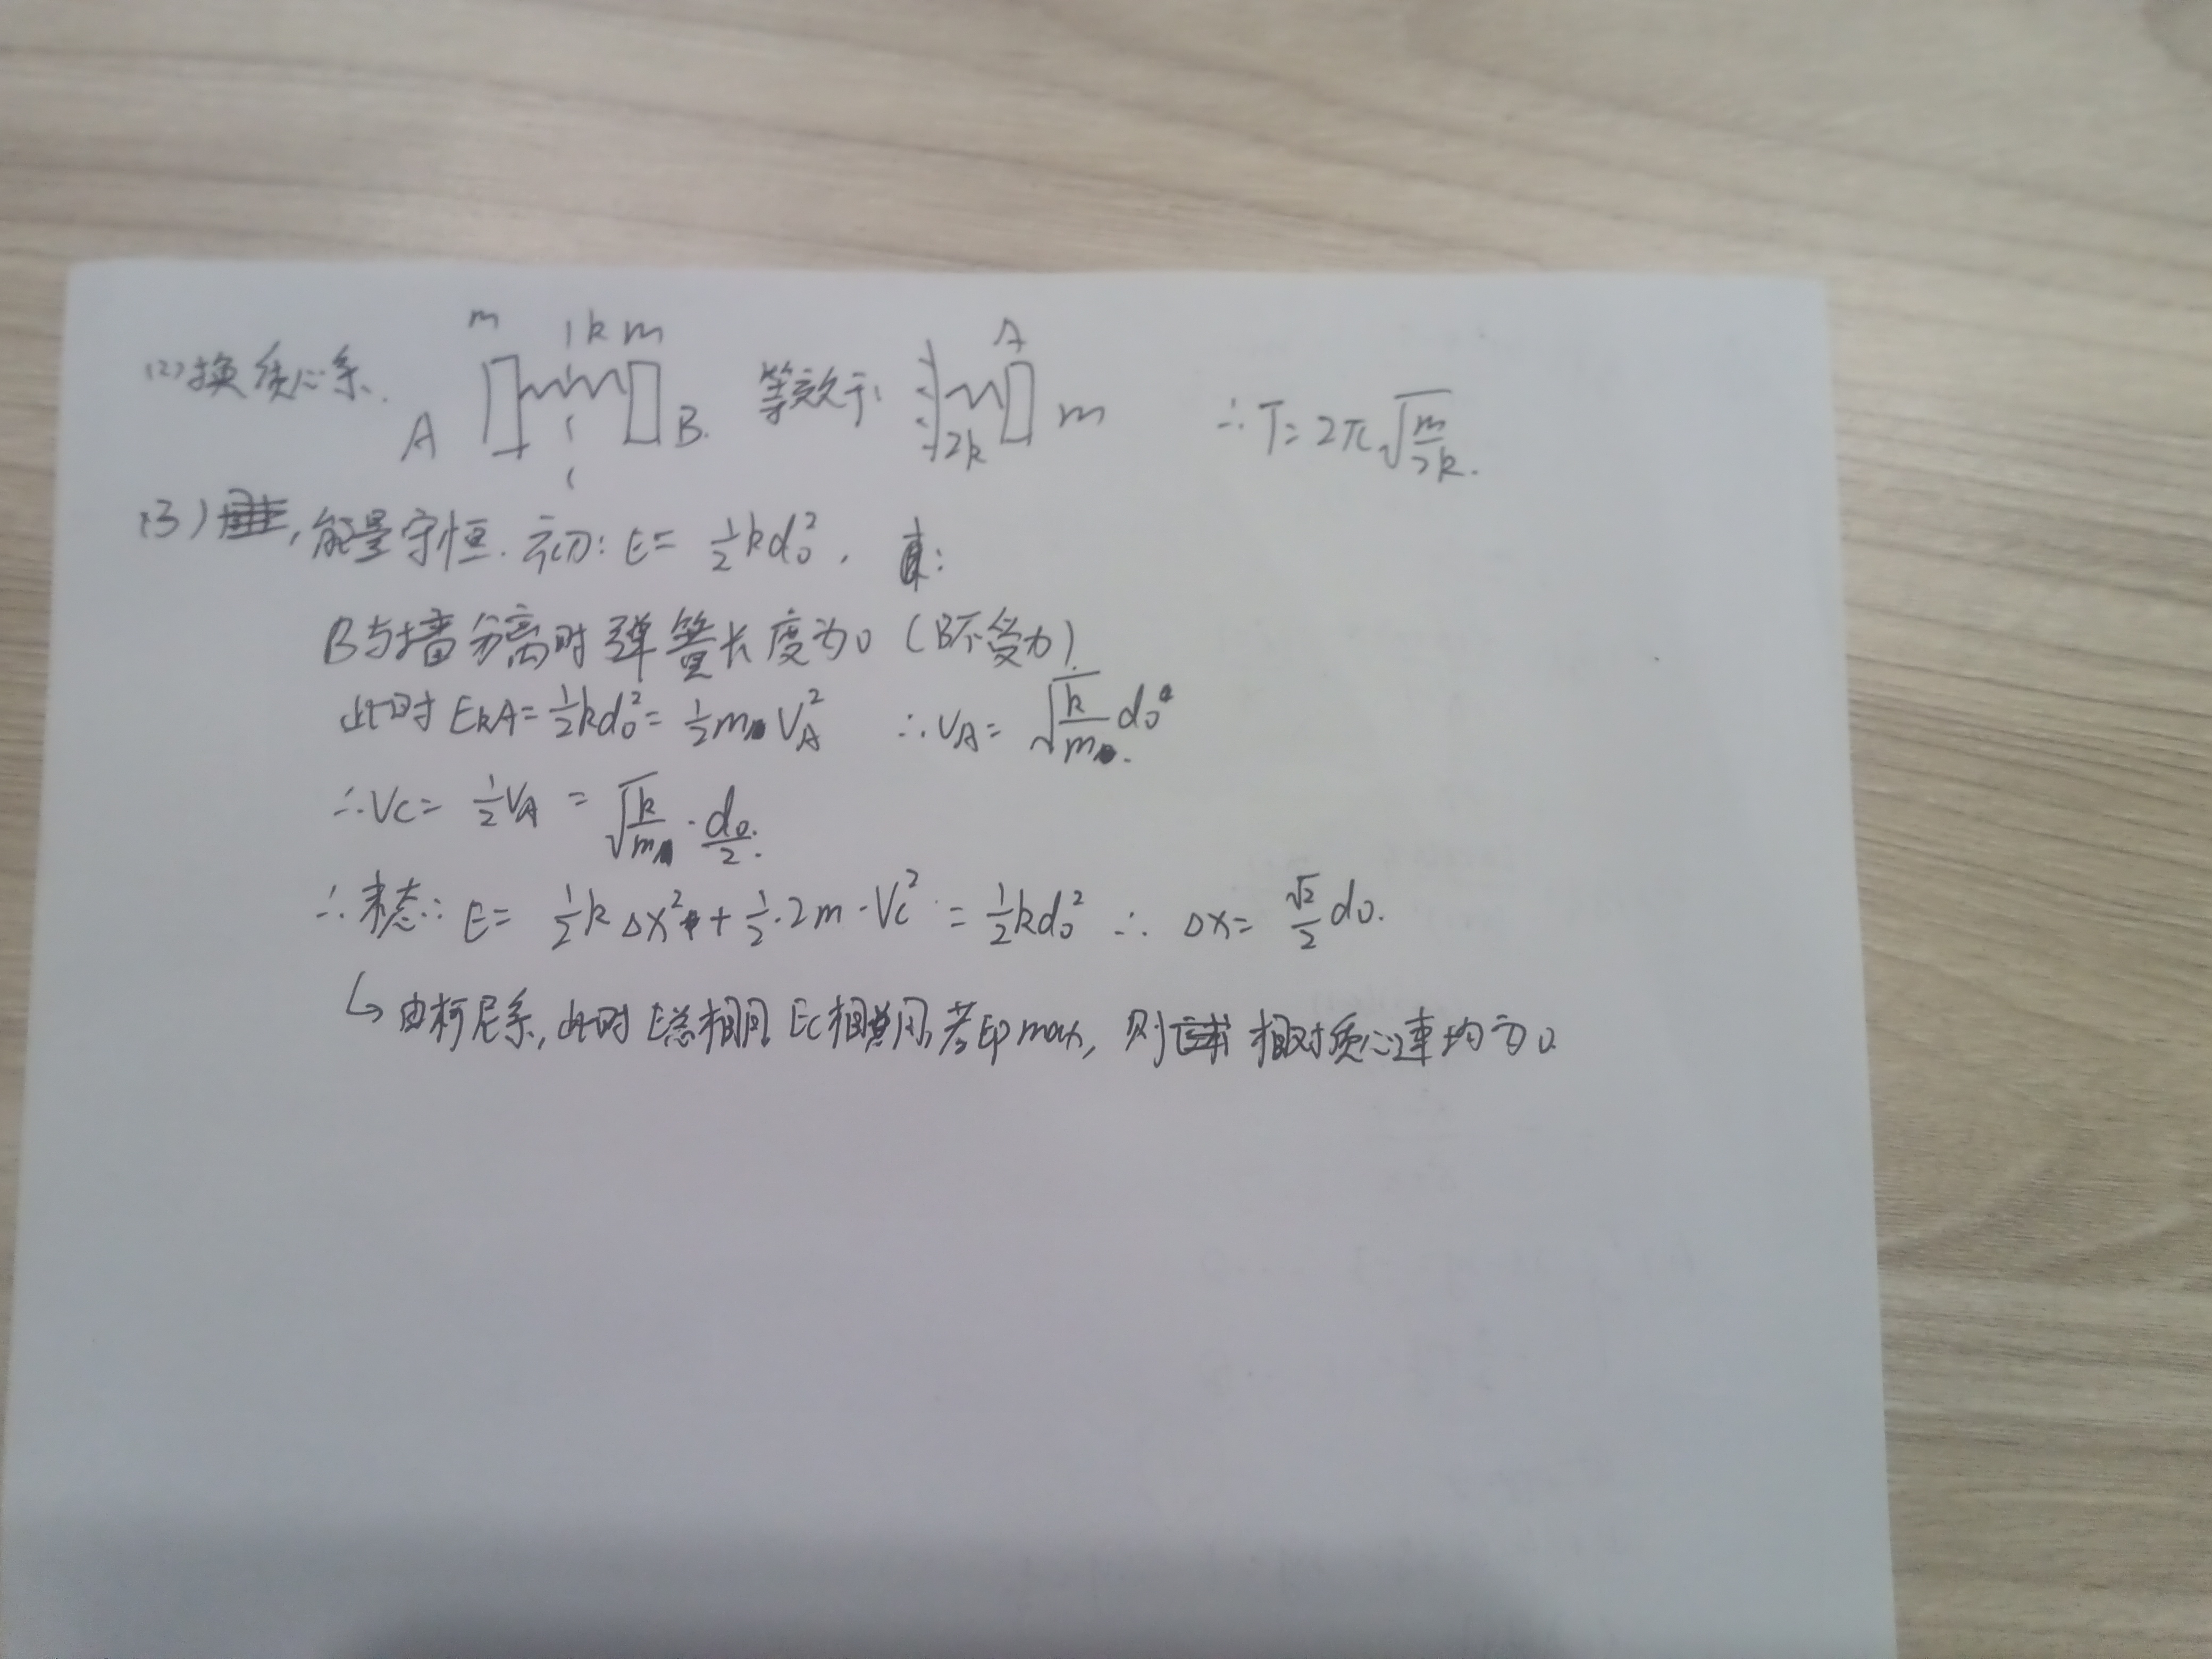 (2) 换质心系. m k m A B. 等效于: A 2k m ∴T=2π√(m/2k).
(3) 能量守恒. 初: E= ½kd₀².
B与墙分离时弹簧长度为0 (B不受力).
此时 EkA=½kd₀²=½mV_A² ∴V_A=√(k/m)d₀
∴Vc= ½V_A = √(k/m)·d₀/2.
∴末态: E= ½kΔx²+½·2m·Vc² = ½kd₀² ∴ Δx= √2/2 d₀.
↳ 由柯尼系, 此时 E总相同 Ec相同, 若Ep max, 则 相对质心速均为0.